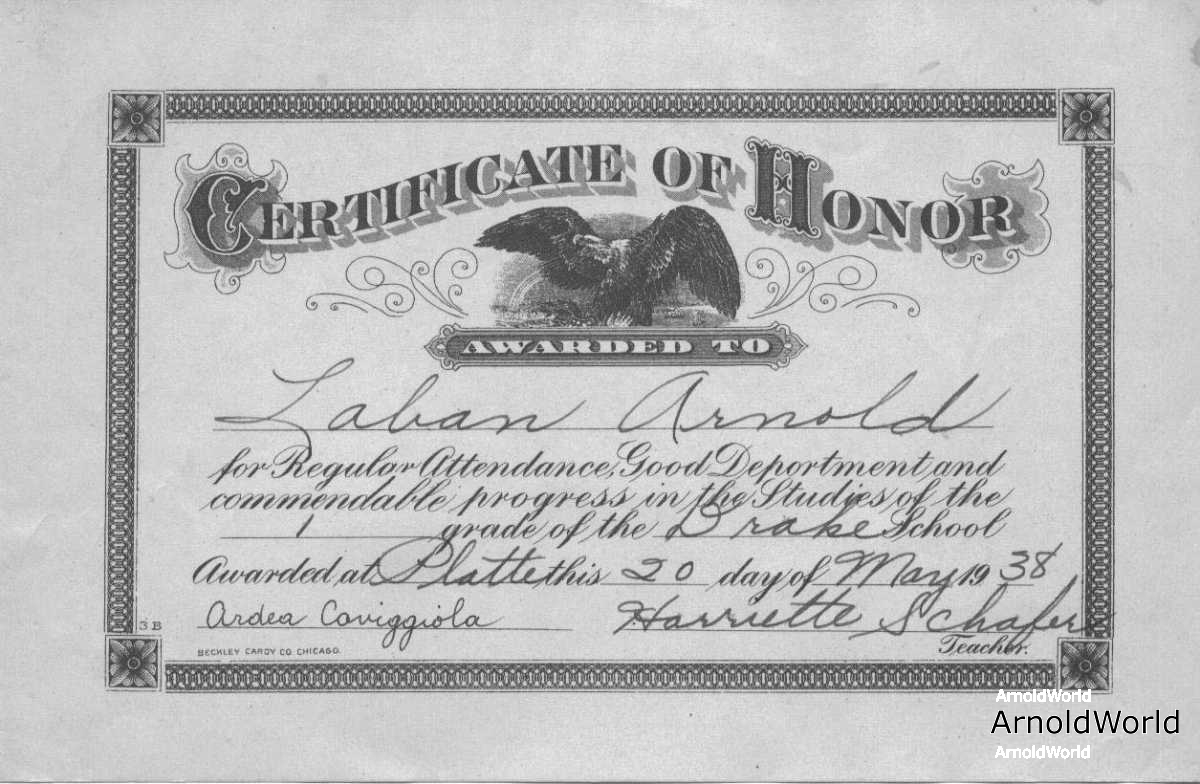 CERTIFICATE OF HONOR
AWARDED TO
Laban Arnold
for Regular Attendance, Good Deportment and
commendable progress in the Studies of the
1 grade of the Drake School
Awarded at Platte this 20 day of May 1938
Ardea Caviggiola Harriette Schafers
3 B
BECKLEY CARDY CO CHICAGO.
Teacher.
ArnoldWorld
ArnoldWorld
ArnoldWorld